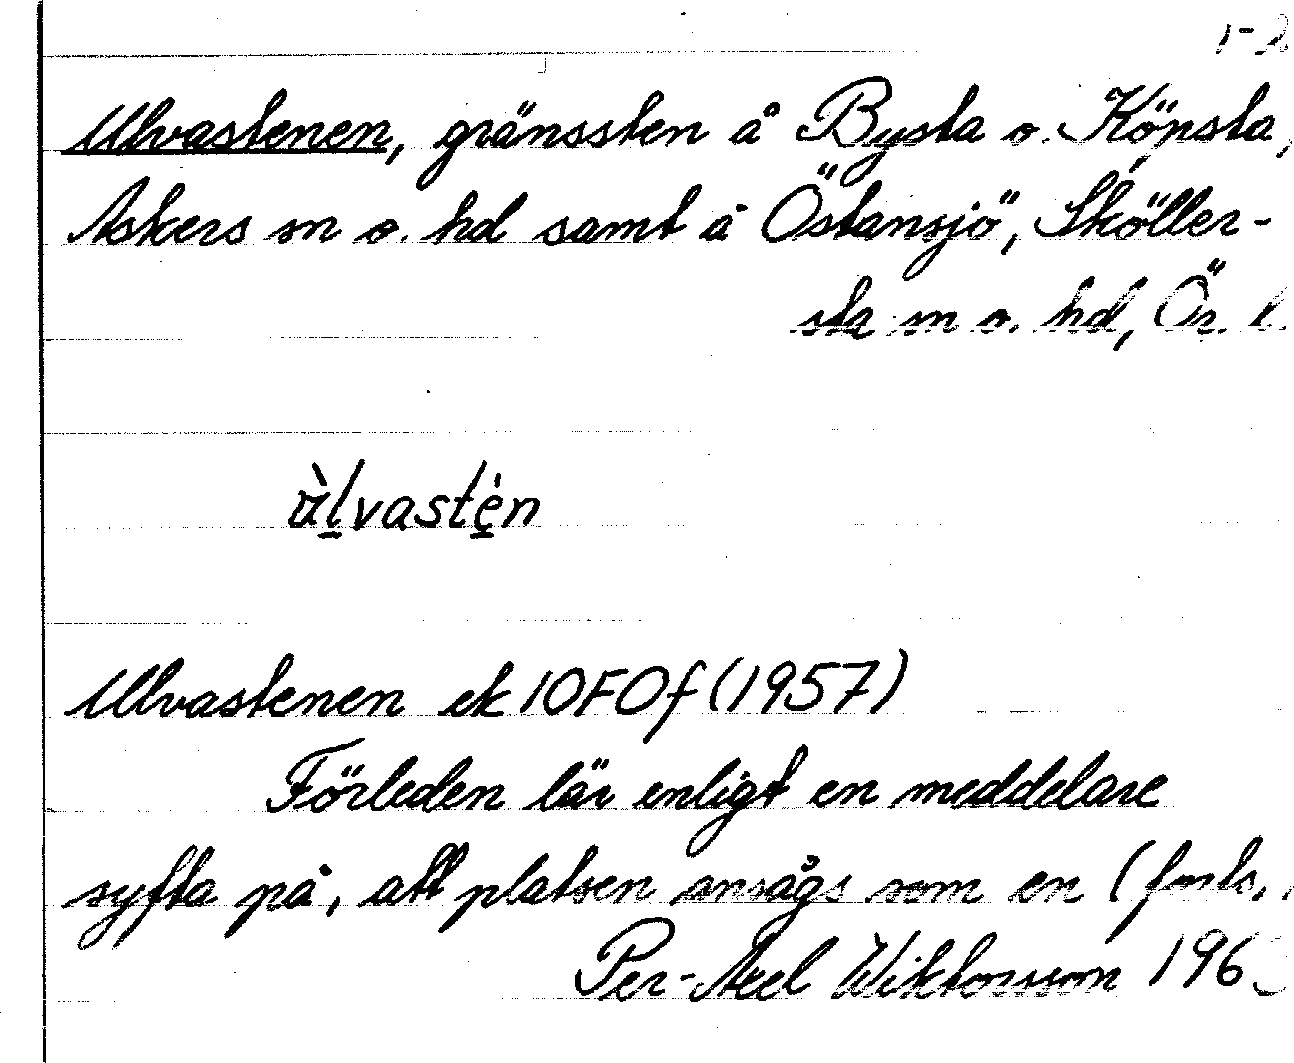 1-2
Ulvastenen, gränssten å Bysta o. Köpsta,
Askers sn o. hd samt å Östansjö, Sköller-
sta sn o. hd, Ör. l.
ùlvastèn
Ulvastenen ek 10F0f (1957)
Förleden lär enligt en meddelare
syfta på, att platsen ansågs som en (forts.
Per-Axel Wiktorsson 196